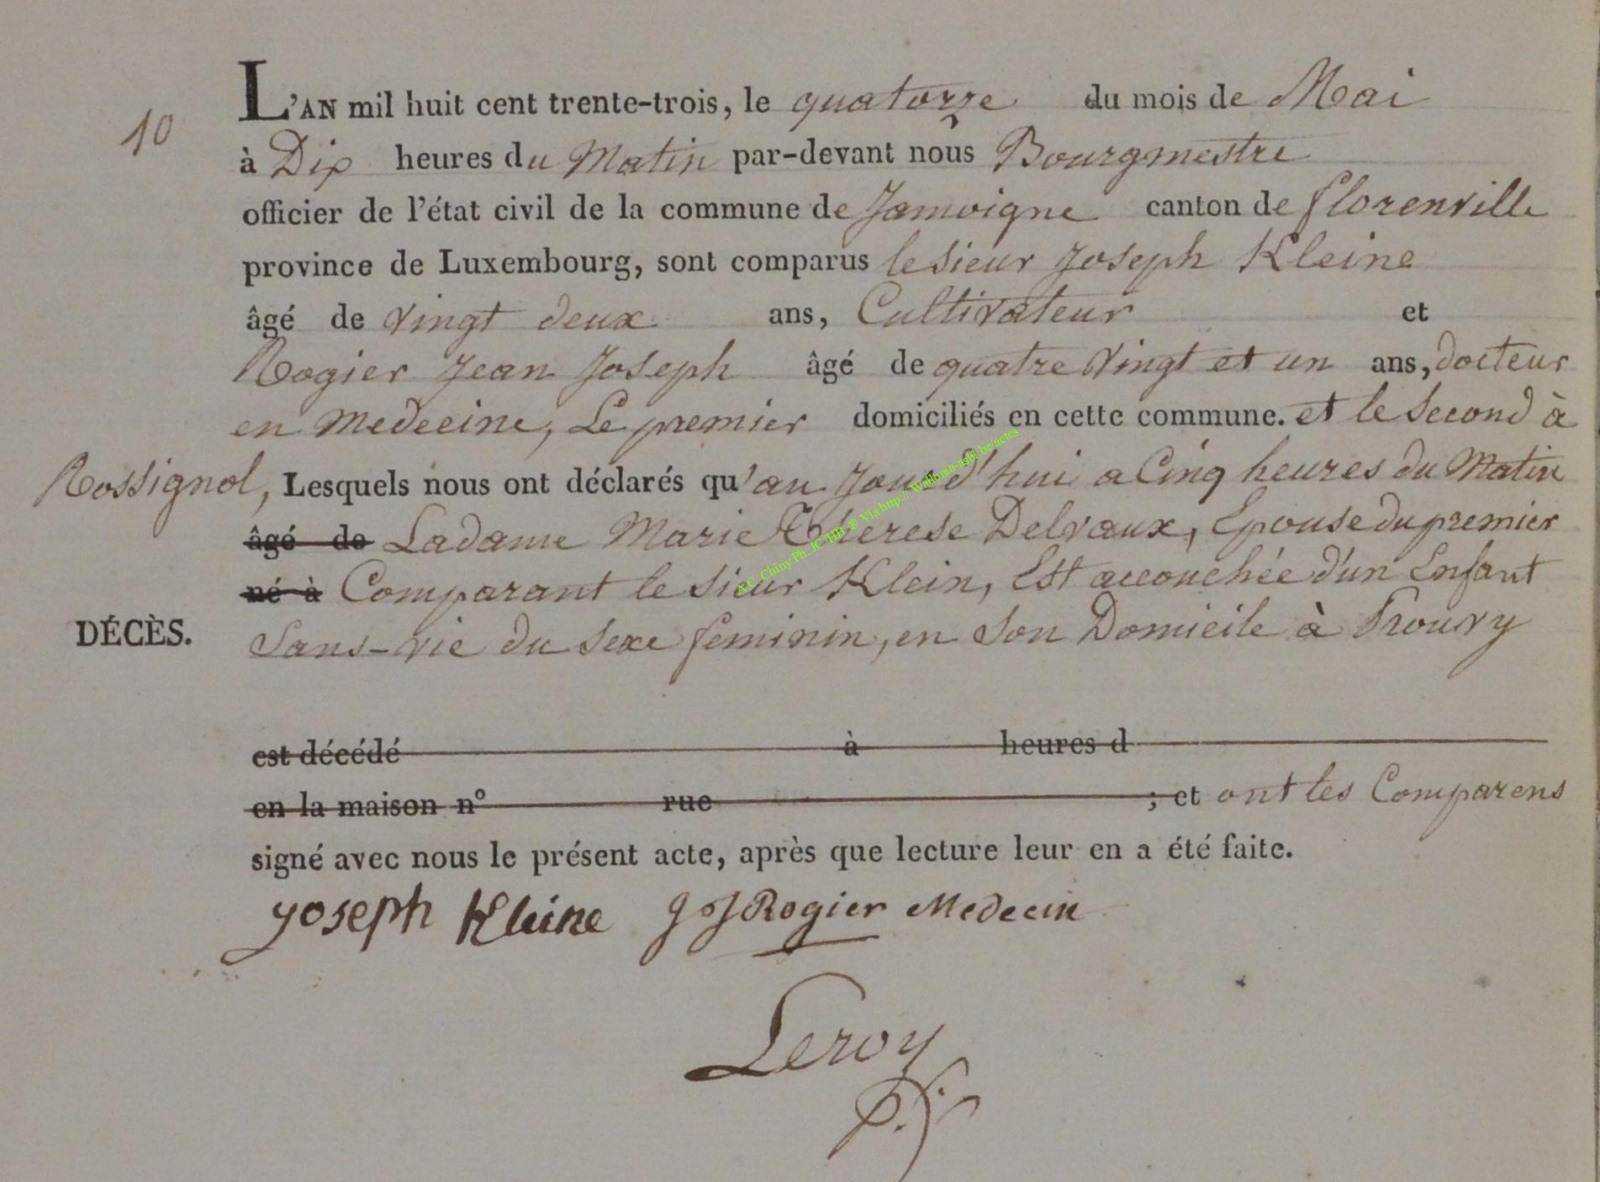 10
L'AN mil huit cent trente-trois, le quatorze du mois de Mai
à Dix heures du Matin par-devant nous Bourgmestre
officier de l'état civil de la commune de Jamoigne canton de florenville
province de Luxembourg, sont comparus le sieur Joseph Kleine
âgé de vingt deux ans, Cultivateur et
Rogier Jean Joseph âgé de quatre vingt et un ans, docteur
en Medecine, Le premier domiciliés en cette commune. et le second à
Rossignol, Lesquels nous ont déclarés qu'au Jourd'hui a Cinq heures du Matin
âgé de Ladame Marie Therese Delvaux, Epouse du premier
né à Comparant le sieur Klein, Est accouchée d'un Enfant
DÉCÈS. Sans-vie du sexe feminin, en son Domicile à Prouvy
est décédé à heures d
en la maison n° rue ; et ont les Comparens
signé avec nous le présent acte, après que lecture leur en a été faite.
Joseph Kleine J J Rogier Medecin
Leroy